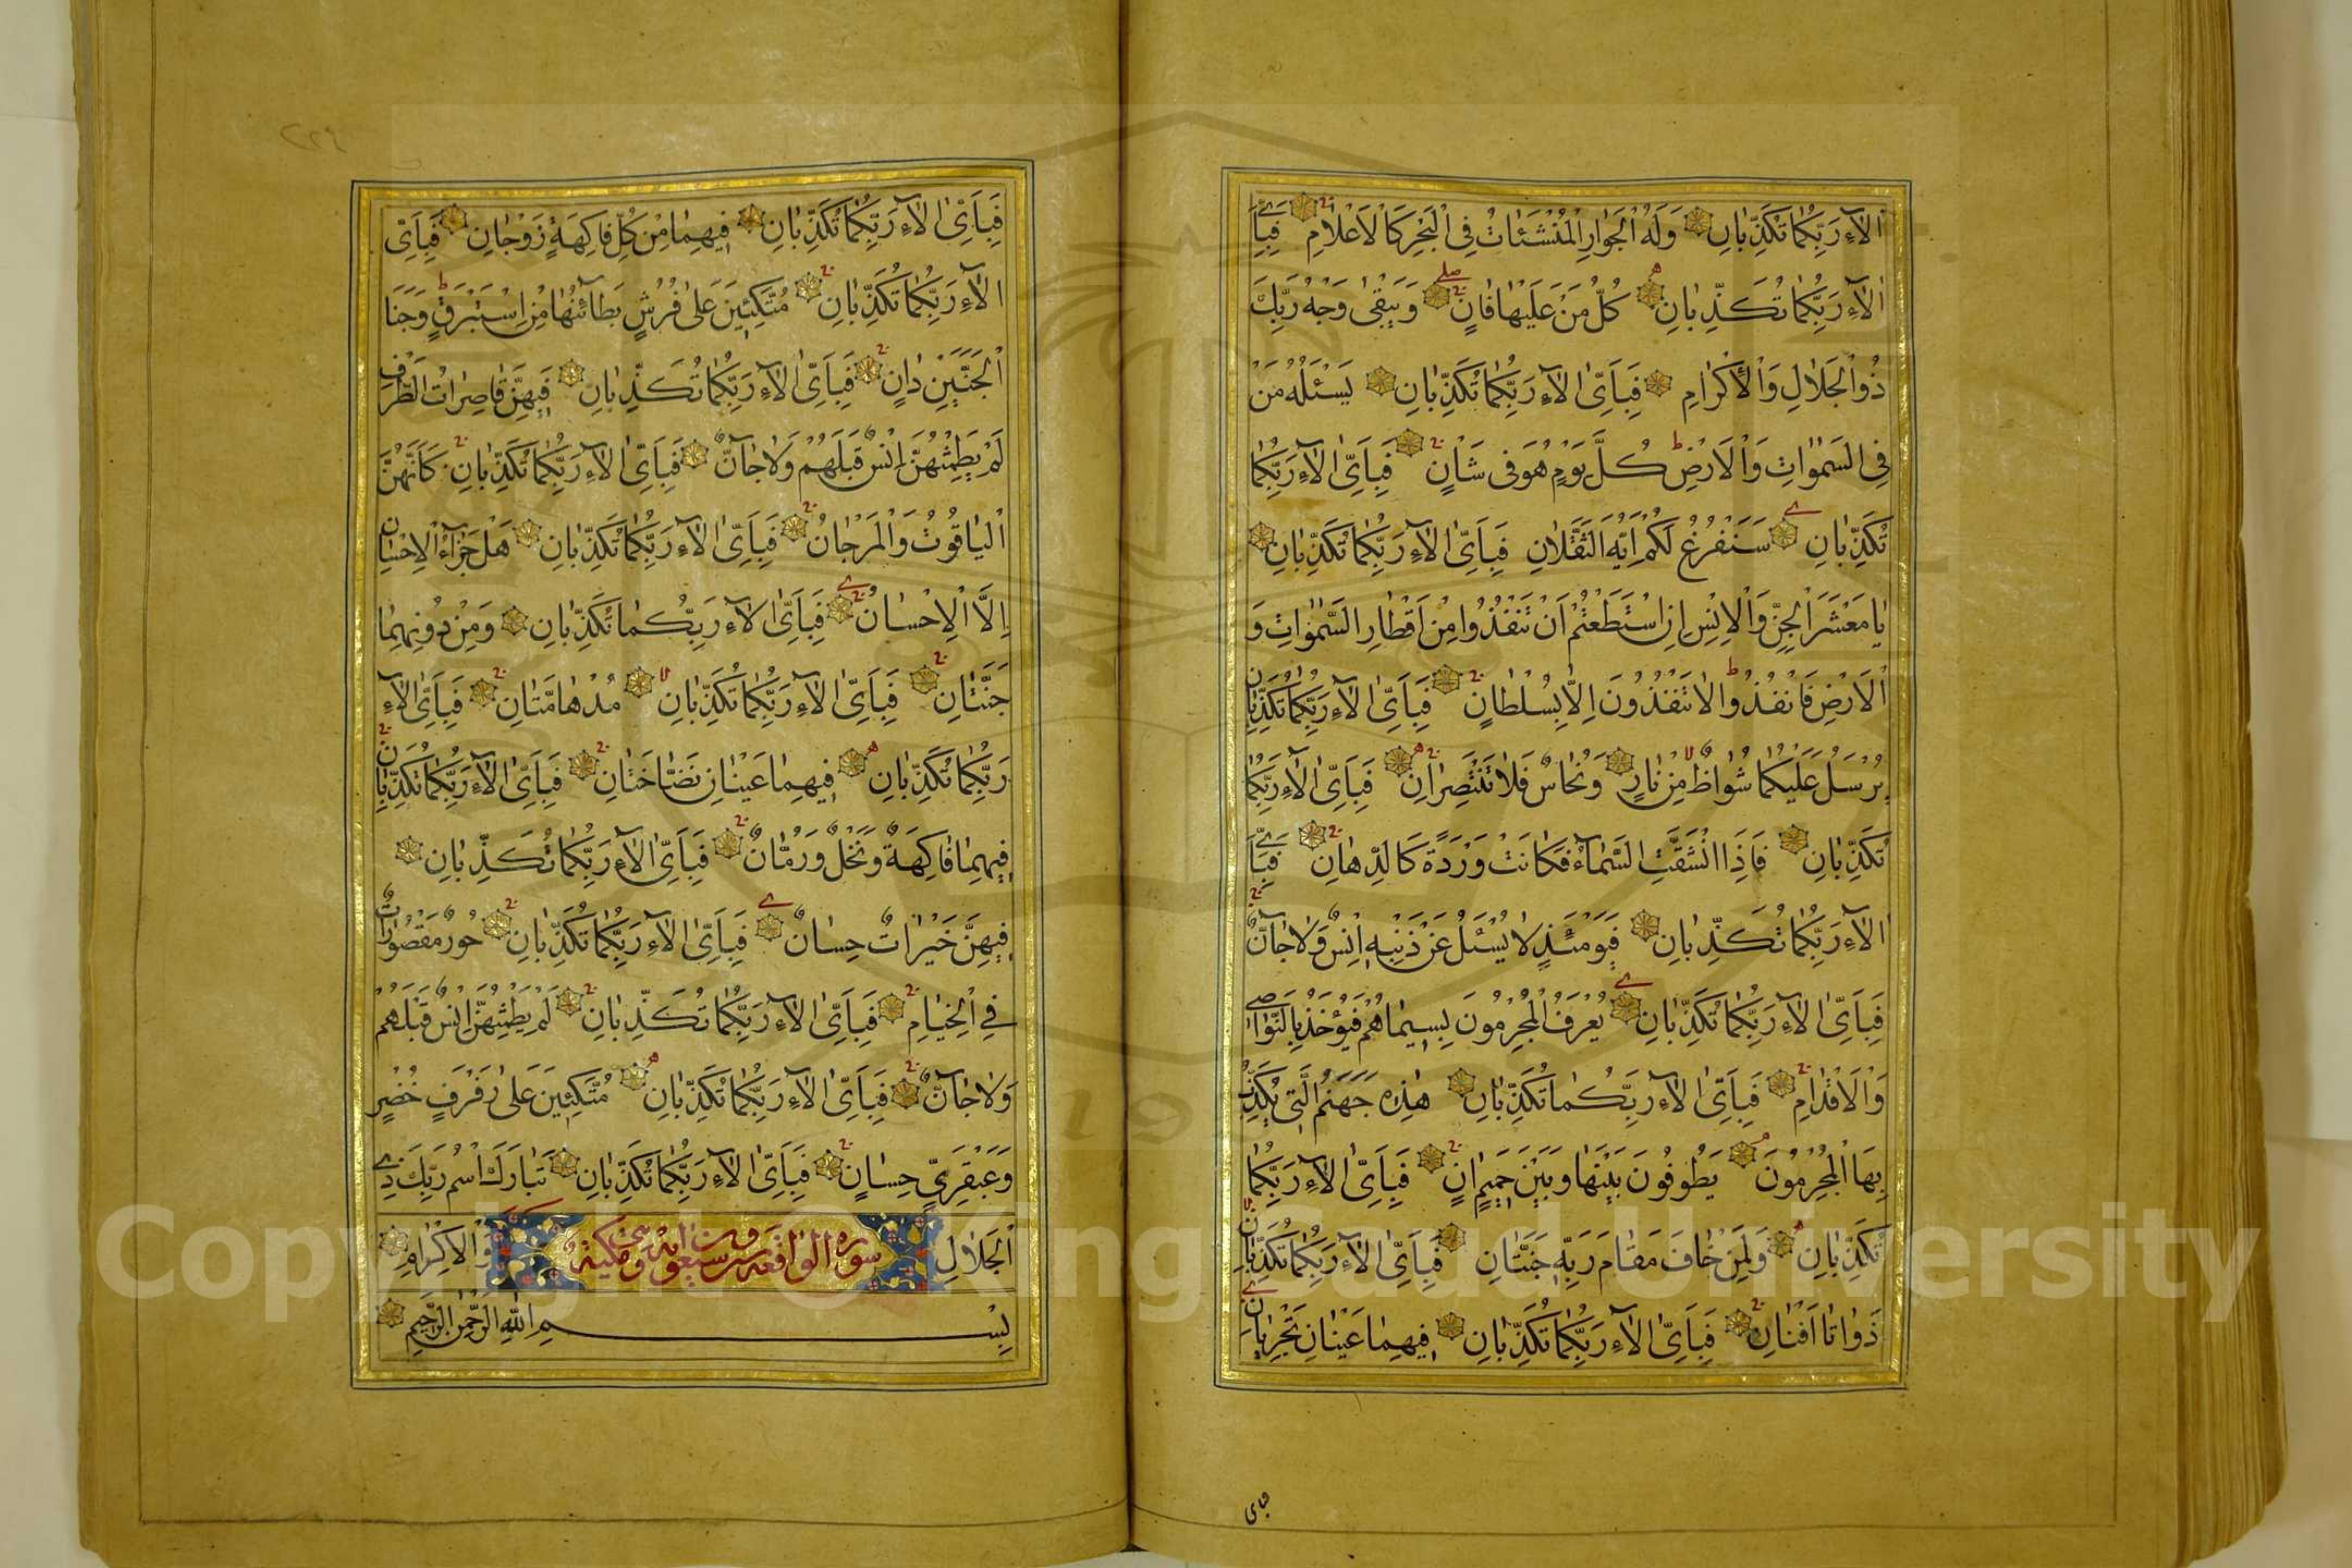 اٰلَآءِ رَبِّكُمَا تُكَذِّبَانِ وَلَهُ الْجَوَارِ الْمُنْشَـئَاتُ فِي الْبَحْرِ كَالْاَعْلَامِ فَبِاَيِّ
اٰلَآءِ رَبِّكُمَا تُكَذِّبَانِ كُلُّ مَنْ عَلَيْهَا فَانٍ وَيَبْقٰى وَجْهُ رَبِّكَ
ذُو الْجَلَالِ وَالْاِكْرَامِ فَبِاَيِّ اٰلَآءِ رَبِّكُمَا تُكَذِّبَانِ يَسْـَٔلُهُ مَنْ
فِي السَّمٰوَاتِ وَالْاَرْضِ كُلَّ يَوْمٍ هُوَ فِي شَاْنٍ فَبِاَيِّ اٰلَآءِ رَبِّكُمَا
تُكَذِّبَانِ سَنَفْرُغُ لَكُمْ اَيُّهَ الثَّقَلَانِ فَبِاَيِّ اٰلَآءِ رَبِّكُمَا تُكَذِّبَانِ
يَا مَعْشَرَ الْجِنِّ وَالْاِنْسِ اِنِ اسْتَطَعْتُمْ اَنْ تَنْفُذُوا مِنْ اَقْطَارِ السَّمٰوَاتِ وَ
الْاَرْضِ فَانْفُذُوا لَا تَنْفُذُونَ اِلَّا بِسُلْطَانٍ فَبِاَيِّ اٰلَآءِ رَبِّكُمَا تُكَذِّبَانِ
يُرْسَلُ عَلَيْكُمَا شُوَاظٌ مِنْ نَارٍ وَنُحَاسٌ فَلَا تَنْتَصِرَانِ فَبِاَيِّ اٰلَآءِ رَبِّكُمَا
تُكَذِّبَانِ فَاِذَا انْشَقَّتِ السَّمَآءُ فَكَانَتْ وَرْدَةً كَالدِّهَانِ فَبِاَيِّ
اٰلَآءِ رَبِّكُمَا تُكَذِّبَانِ فَيَوْمَئِذٍ لَا يُسْـَٔلُ عَنْ ذَنْبِهِ اِنْسٌ وَلَا جَآنٌّ
فَبِاَيِّ اٰلَآءِ رَبِّكُمَا تُكَذِّبَانِ يُعْرَفُ الْمُجْرِمُونَ بِسِيمَاهُمْ فَيُؤْخَذُ بِالنَّوَاصِي
وَالْاَقْدَامِ فَبِاَيِّ اٰلَآءِ رَبِّكُمَا تُكَذِّبَانِ هٰذِهِ جَهَنَّمُ الَّتِي يُكَذِّبُ
بِهَا الْمُجْرِمُونَ يَطُوفُونَ بَيْنَهَا وَبَيْنَ حَمِيمٍ اٰنٍ فَبِاَيِّ اٰلَآءِ رَبِّكُمَا
تُكَذِّبَانِ وَلِمَنْ خَافَ مَقَامَ رَبِّهِ جَنَّتَانِ فَبِاَيِّ اٰلَآءِ رَبِّكُمَا تُكَذِّبَانِ
ذَوَاتَا اَفْنَانٍ فَبِاَيِّ اٰلَآءِ رَبِّكُمَا تُكَذِّبَانِ فِيهِمَا عَيْنَانِ تَجْرِيَانِ
فباى
فَبِاَيِّ اٰلَآءِ رَبِّكُمَا تُكَذِّبَانِ فِيهِمَا مِنْ كُلِّ فَاكِهَةٍ زَوْجَانِ فَبِاَيِّ
اٰلَآءِ رَبِّكُمَا تُكَذِّبَانِ مُتَّكِئِينَ عَلٰى فُرُشٍ بَطَآئِنُهَا مِنْ اِسْتَبْرَقٍ وَجَنَا
الْجَنَّتَيْنِ دَانٍ فَبِاَيِّ اٰلَآءِ رَبِّكُمَا تُكَذِّبَانِ فِيهِنَّ قَاصِرَاتُ الطَّرْفِ
لَمْ يَطْمِثْهُنَّ اِنْسٌ قَبْلَهُمْ وَلَا جَآنٌّ فَبِاَيِّ اٰلَآءِ رَبِّكُمَا تُكَذِّبَانِ كَاَنَّهُنَّ
الْيَاقُوتُ وَالْمَرْجَانُ فَبِاَيِّ اٰلَآءِ رَبِّكُمَا تُكَذِّبَانِ هَلْ جَزَآءُ الْاِحْسَانِ
اِلَّا الْاِحْسَانُ فَبِاَيِّ اٰلَآءِ رَبِّكُمَا تُكَذِّبَانِ وَمِنْ دُونِهِمَا
جَنَّتَانِ فَبِاَيِّ اٰلَآءِ رَبِّكُمَا تُكَذِّبَانِ مُدْهَامَّتَانِ فَبِاَيِّ اٰلَآءِ
رَبِّكُمَا تُكَذِّبَانِ فِيهِمَا عَيْنَانِ نَضَّاخَتَانِ فَبِاَيِّ اٰلَآءِ رَبِّكُمَا تُكَذِّبَانِ
فِيهِمَا فَاكِهَةٌ وَنَخْلٌ وَرُمَّانٌ فَبِاَيِّ اٰلَآءِ رَبِّكُمَا تُكَذِّبَانِ
فِيهِنَّ خَيْرَاتٌ حِسَانٌ فَبِاَيِّ اٰلَآءِ رَبِّكُمَا تُكَذِّبَانِ حُورٌ مَقْصُورَاتٌ
فِي الْخِيَامِ فَبِاَيِّ اٰلَآءِ رَبِّكُمَا تُكَذِّبَانِ لَمْ يَطْمِثْهُنَّ اِنْسٌ قَبْلَهُمْ
وَلَا جَآنٌّ فَبِاَيِّ اٰلَآءِ رَبِّكُمَا تُكَذِّبَانِ مُتَّكِئِينَ عَلٰى رَفْرَفٍ خُضْرٍ
وَعَبْقَرِيٍّ حِسَانٍ فَبِاَيِّ اٰلَآءِ رَبِّكُمَا تُكَذِّبَانِ تَبَارَكَ اسْمُ رَبِّكَ ذِي
الْجَلَالِ وَالْاِكْرَامِ
سورة الواقعة وتسعون اية وهي مكية
بِسْمِ اللّٰهِ الرَّحْمٰنِ الرَّحِيمِ
Copyright © King Saud University